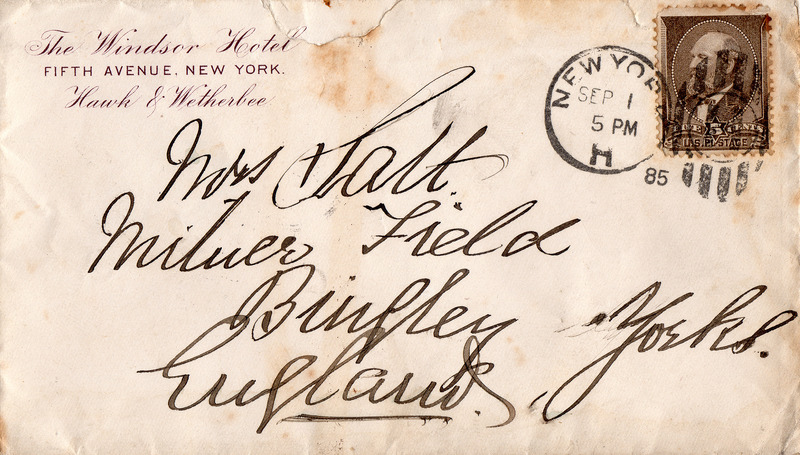 The Windsor Hotel
FIFTH AVENUE, NEW YORK.
Hawk & Wetherbee
NEW YORK
SEP 1
5 PM
H
85
U.S. POSTAGE
Mrs Salt.
Milner Field
Bingley Yorks.
England.